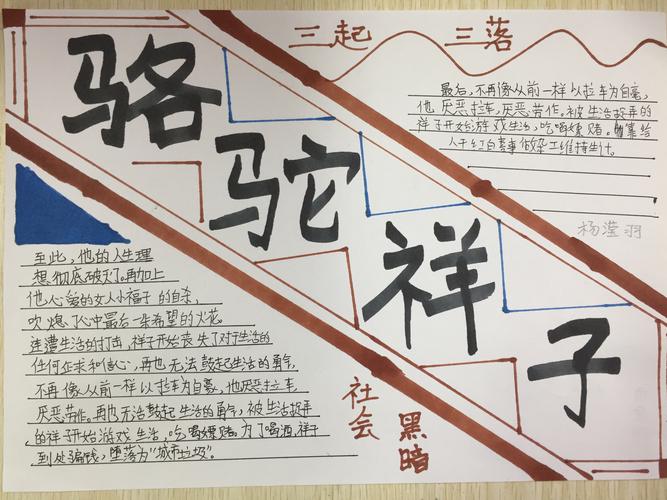 三起 三落
骆驼祥子
最后,不再像从前一样以拉车为自豪,
他厌恶拉车,厌恶劳作。被生活捉弄的
祥子开始游戏生活,吃喝嫖赌。靠给
人干红白喜事做杂工维持生计。
杨滢羽
至此,他的人生理
想彻底破灭了。再加上
他心爱的女人小福子的自杀,
吹熄了心中最后一朵希望的火花。
连遭生活的打击,祥子开始丧失了对于生活的
任何企求和信心,再也无法鼓起生活的勇气,
不再像从前一样以拉车为自豪,他厌恶拉车
厌恶劳作。再也无法鼓起生活的勇气,被生活捉弄
的祥子开始游戏生活,吃喝嫖赌。为了喝酒,祥子
到处骗钱,堕落为"城市垃圾"。
社会
黑暗